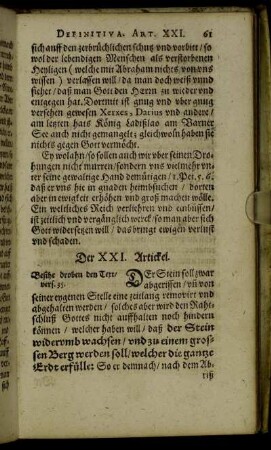 DEFINITIVA. ART. XXI. 61
sich auff den zerbrüchlichen schutz vnd vorbitt / so
wol der lebendigen Menschen als verstorbenen
Heyligen (welche mit Abraham nichts von vns
wissen) verlassen will / da man doch weiß vnnd
siehet / daß man Gott den Herrn zu wieder vnd
entgegen hat. Dormit ist gnug vnd vber gnug
versehen gewesen Xerxes, Darius vnd andere /
am letzten hats König Ladislao am Varner
See auch nicht gemangelt; gleichwoln haben sie
nichts gegen Gott vermöcht.
Ey wolahn / so sollen auch wir vber seinen Dro-
hungen nicht murren / sondern vns vielmehr vn-
ter seine gewaltige Hand demütigen / 1. Pet. 5. 6.
daß er vns hie in gnaden heimbsuchen / dorten
aber in ewigkeit erhöhen vnd groß machen wölle.
Ein weltliches Reich verliehren vnd einbüssen /
ist zeitlich vnd vergänglich werck / so man aber sich
Gott widersetzen will / das bringt ewigen verlust
vnd schaden.
Der XXI. Artickel.
Besihe droben den Text
vers. 35.
DEr Stein soll zwar
abgerissen / vñ von
seiner eygenen Stelle eine zeitlang removirt vnd
abgehalten werden / solches aber wird den Raht-
schluß Gottes nicht auffhalten noch hindern
können / welcher haben will / daß der Stein
widerumb wachsen / vnd zu einem gros-
sen Berg werden soll / welcher die gantze
Erdt erfülle: So er demnach / nach dem Ab-
riß